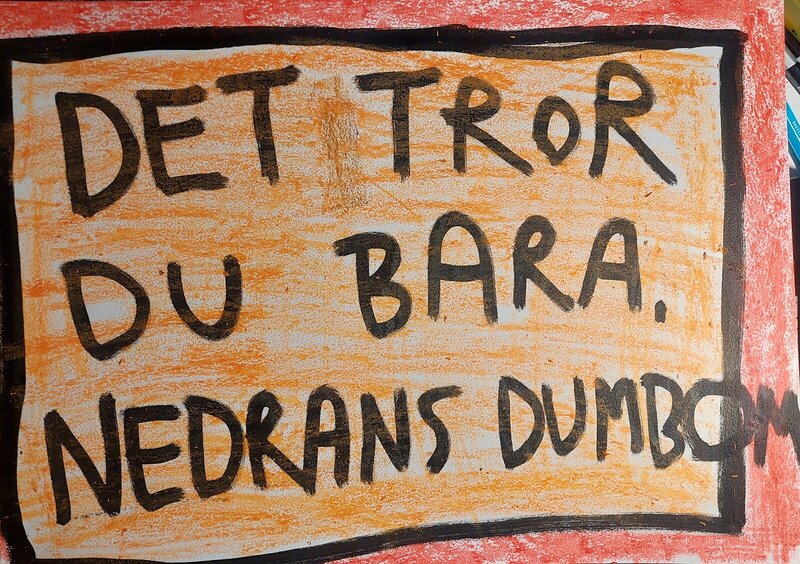 DET TROR
DU BARA.
NEDRANS DUMBOM